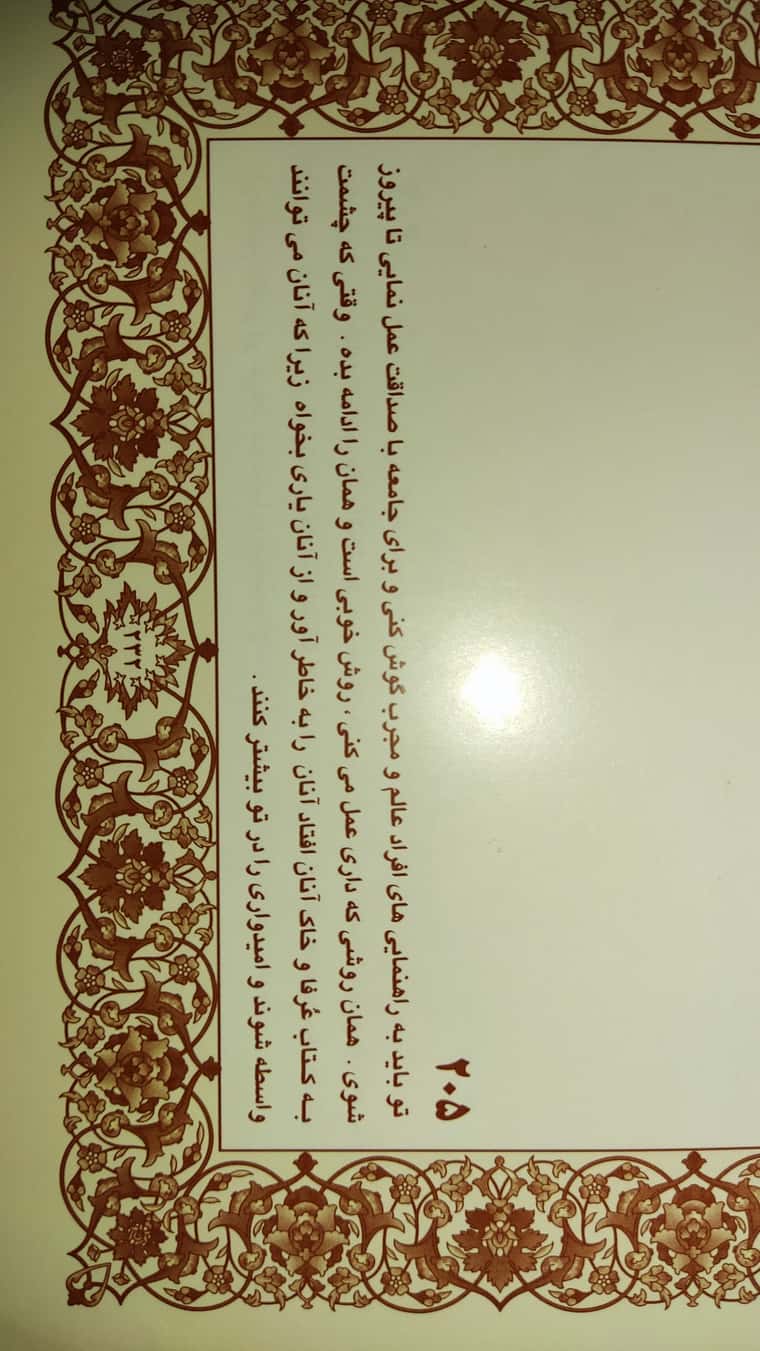 ۲۰۵
تو باید به راهنمایی های افراد عالم و مجرب گوش کنی و برای جامعه با صداقت عمل نمایی تا پیروز
شوی . همان روشی که داری عمل می کنی ، روش خوبی است و همان را ادامه بده . وقتی که چشمت
به کتاب عُرفا و خاک آنان افتاد آنان را به خاطر آور و از آنان یاری بخواه زیرا که آنان می توانند
واسطه شوند و امیدواری را در تو بیشتر کنند .
۲۳۲